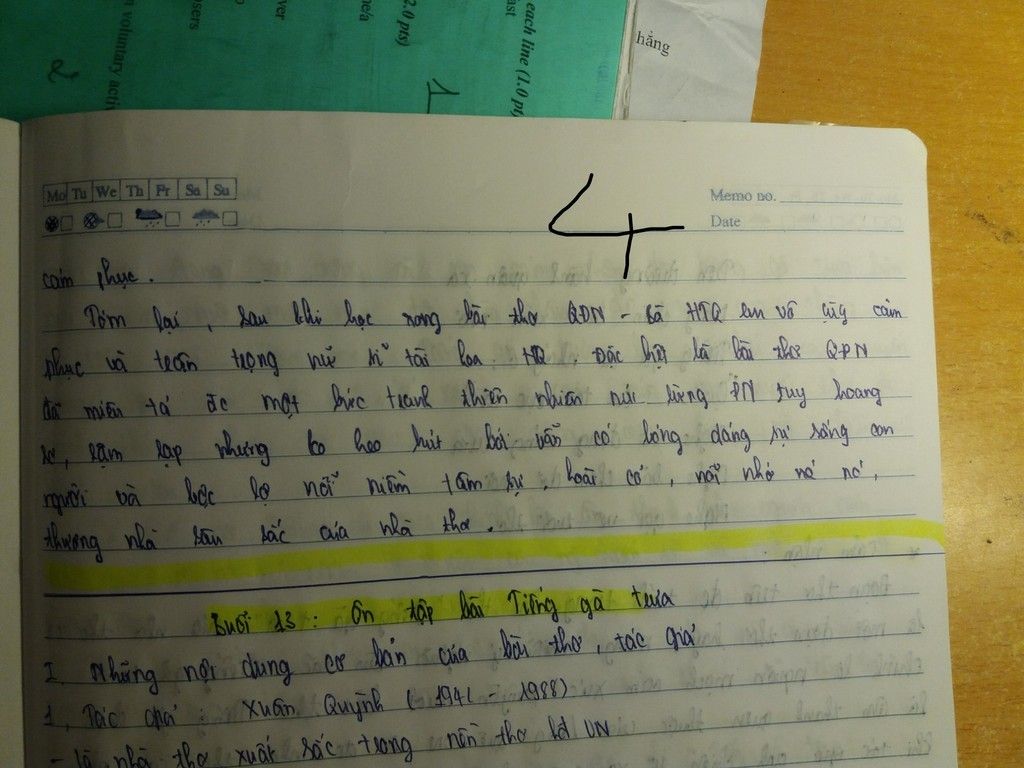 n voluntary activ
users
ver
ne/a
2.0 pts)
each line (1.0 pt
ast
2
1
hằng
Mo Tu We Th Fr Sa Su
Memo no.
Date
4
cảm phục.
Tóm lại, sau khi học xong bài thơ QĐN - Bà HTQ em vô cùg cảm
phục và trân trọng nữ sĩ tài hoa. HTQ. Đặc biệt là bài thơ QĐN
đã miêu tả đc một bức tranh thiên nhiên núi rừng ĐN tuy hoang
sơ, rậm rạp nhưng ko heo hút bởi vẫn có bóng dáng sự sống con
người và bộc lộ nỗi niềm tâm sự, hoài cổ, nỗi nhớ nc,
thương nhà sâu sắc của nhà thơ.
Buổi 13: Ôn tập bài Tiếng gà trưa
I. Những nội dung cơ bản của bài thơ, tác giả
1, Tác giả: Xuân Quỳnh (1941 - 1988)
- là nhà thơ xuất sắc trong nền thơ hđ VN